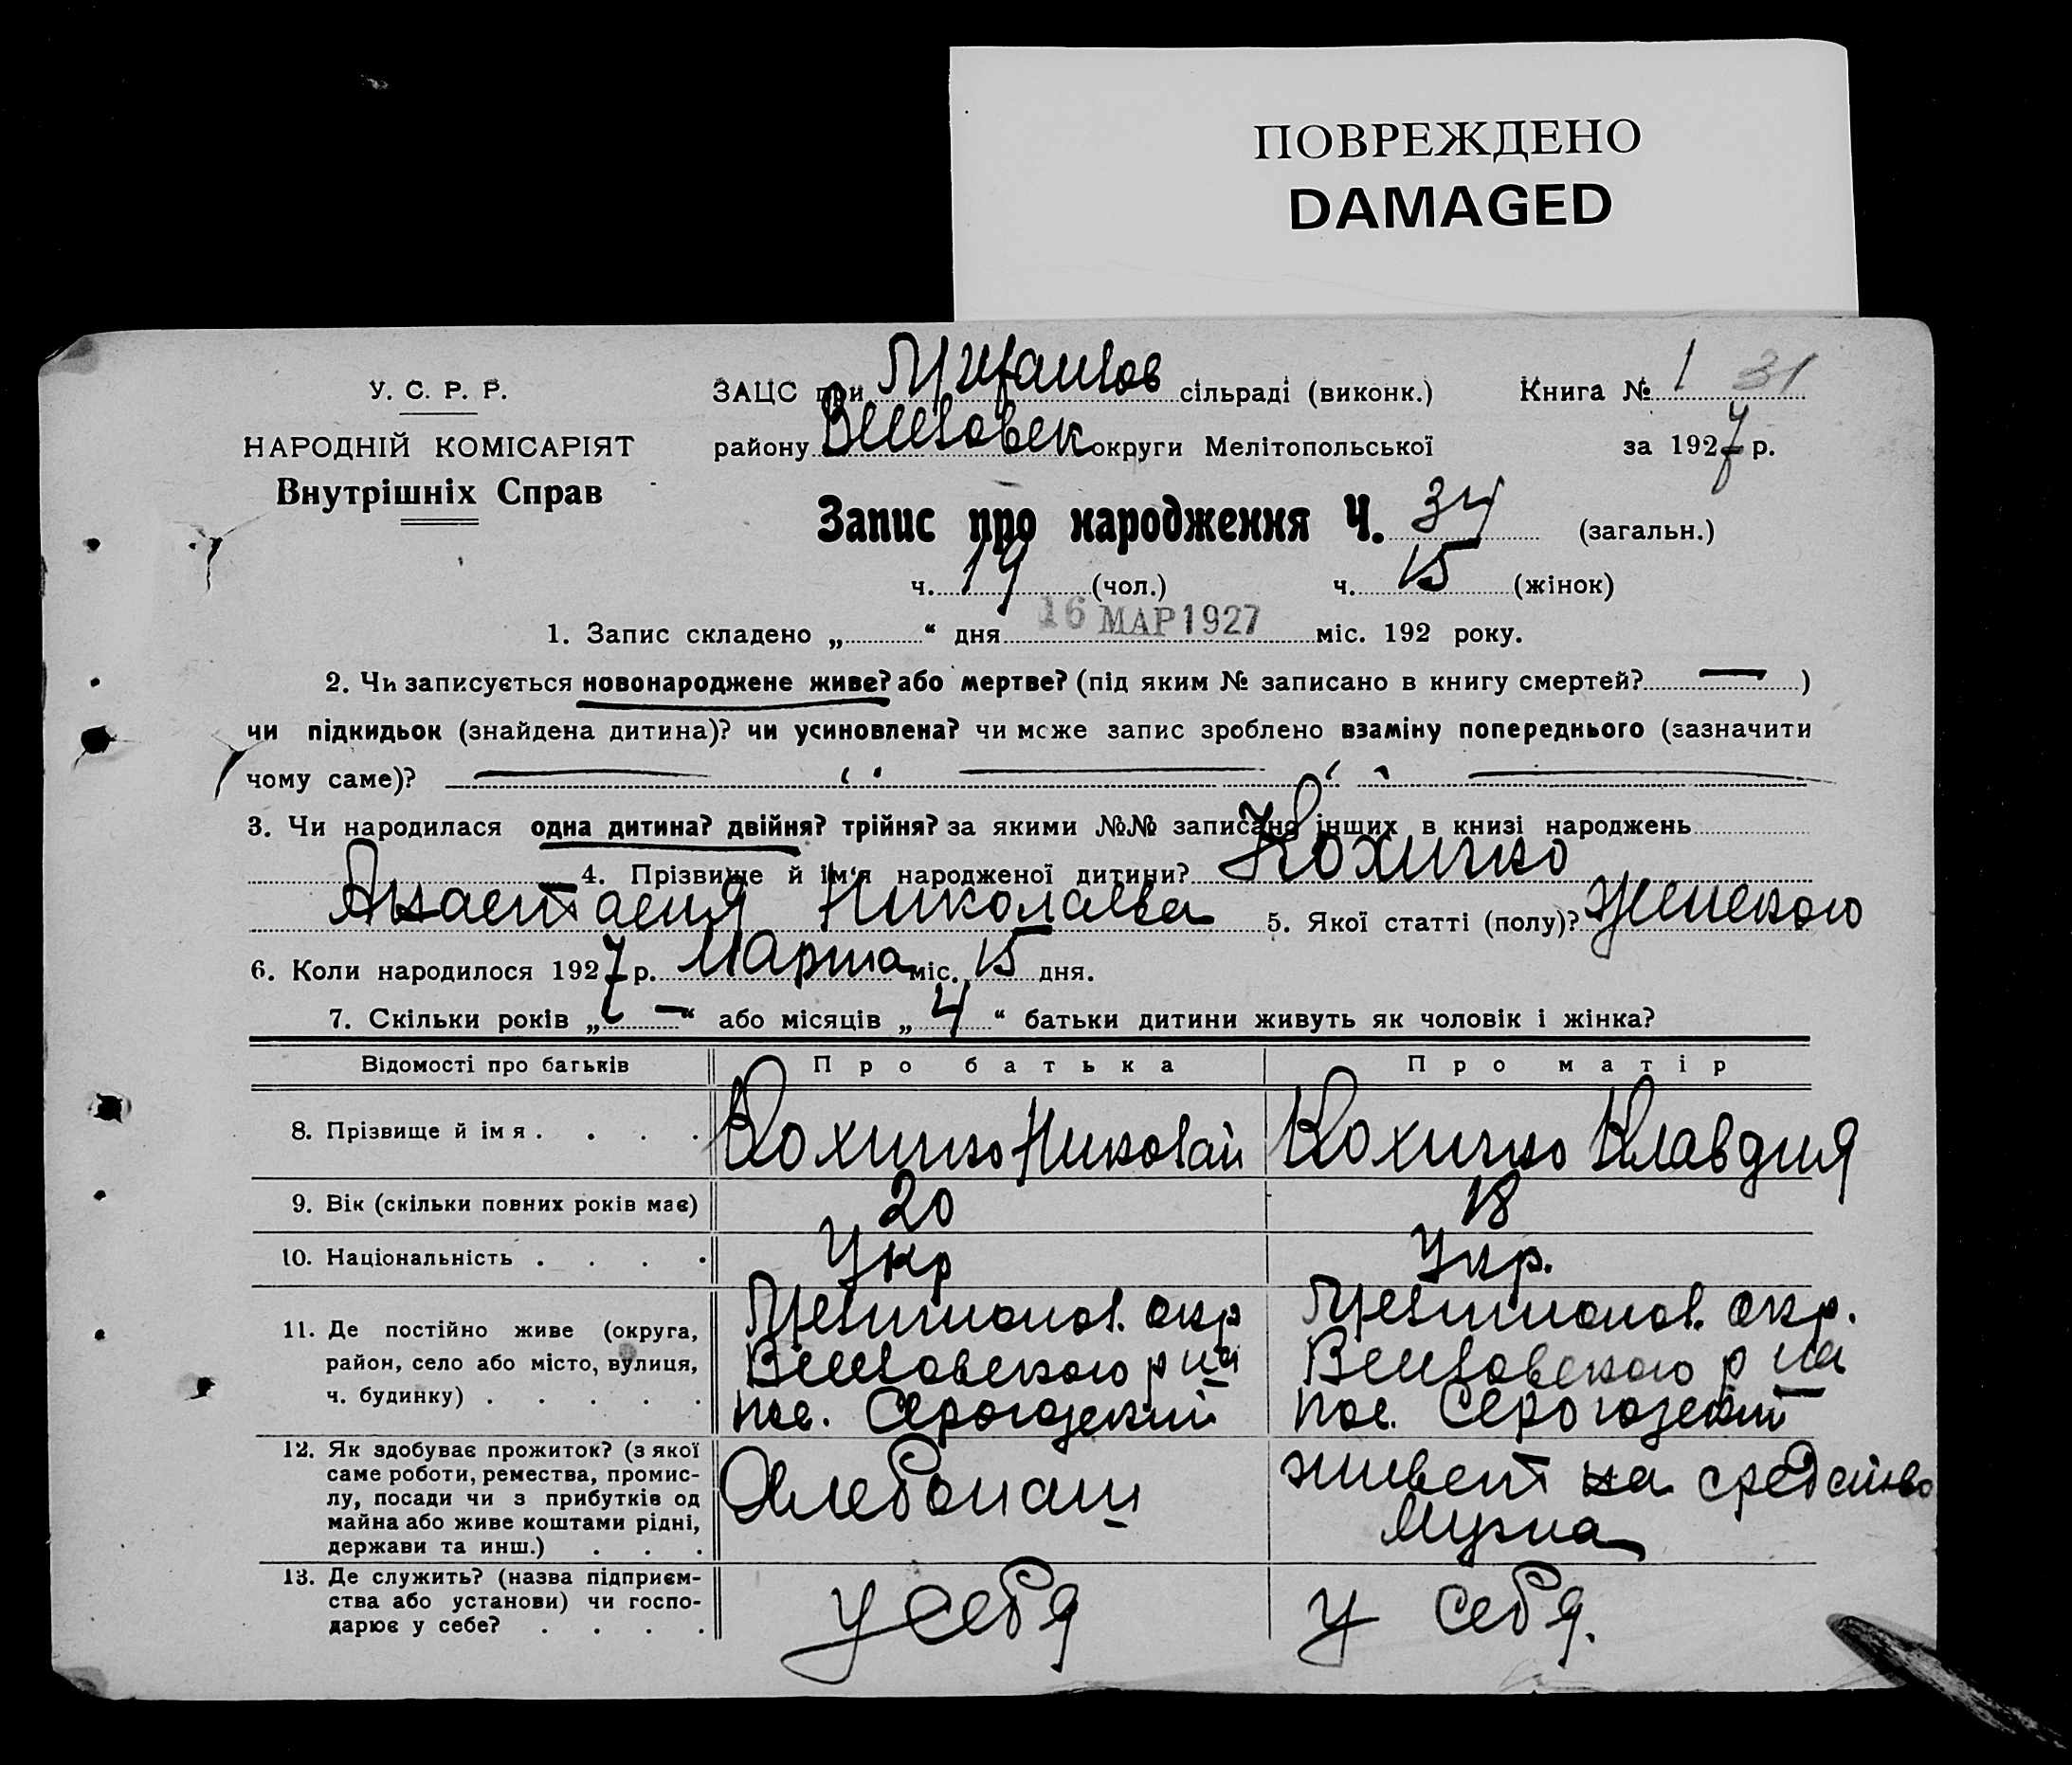 ПОВРЕЖДЕНО
DAMAGED
У. С. Р. Р.
НАРОДНІЙ КОМІСАРІЯТ
Внутрішніх Справ
ЗАЦС при сільраді (виконк.) Книга № 1 31
району округи Мелітопольської за 1927 р.
Запис про народження Ч. 34 (загальн.)
ч. 19 (чол.) ч. 15 (жінок)
1. Запис складено „ “ дня 16 МАР 1927 міс. 192 року.
2. Чи записується новонароджене живе? або мертве? (під яким № записано в книгу смертей? — )
чи підкидьок (знайдена дитина)? чи усиновлена? чи може запис зроблено взаміну попереднього (зазначити
чому саме)?
3. Чи народилася одна дитина? двійня? трійня? за якими №№ записано інших в книзі народжень
4. Прізвище й ім‘я народженої дитини? Кохичко
Анастасия Николаева 5. Якої статті (полу)? Женского
6. Коли народилося 1927 р. Марта міс. 15 дня.
7. Скільки років „ — “ або місяців „ 4 “ батьки дитини живуть як чоловік і жінка?
Відомості про батьків
Про батька
Про матір
8. Прізвище й імя . . . .
Кохичко Николай
Кохичко Клавдия
9. Вік (скільки повних років має)
20
18
10. Національність . . . .
Укр
Укр.
11. Де постійно живе (округа,
район, село або місто, вулиця,
ч. будинку) . . . . .
окр
р на
пос. Серогозский
окр.
р на
пос. Серогозский
12. Як здобуває прожиток? (з якої
саме роботи, ремества, промис-
лу, посади чи з прибутків од
майна або живе коштами рідні,
держави та инш.) . . .
Хлебопаш
живет на средство
Мужа
13. Де служить? (назва підприєм-
ства або установи) чи госпо-
дарює у себе? . . . .
у себя
у себя.